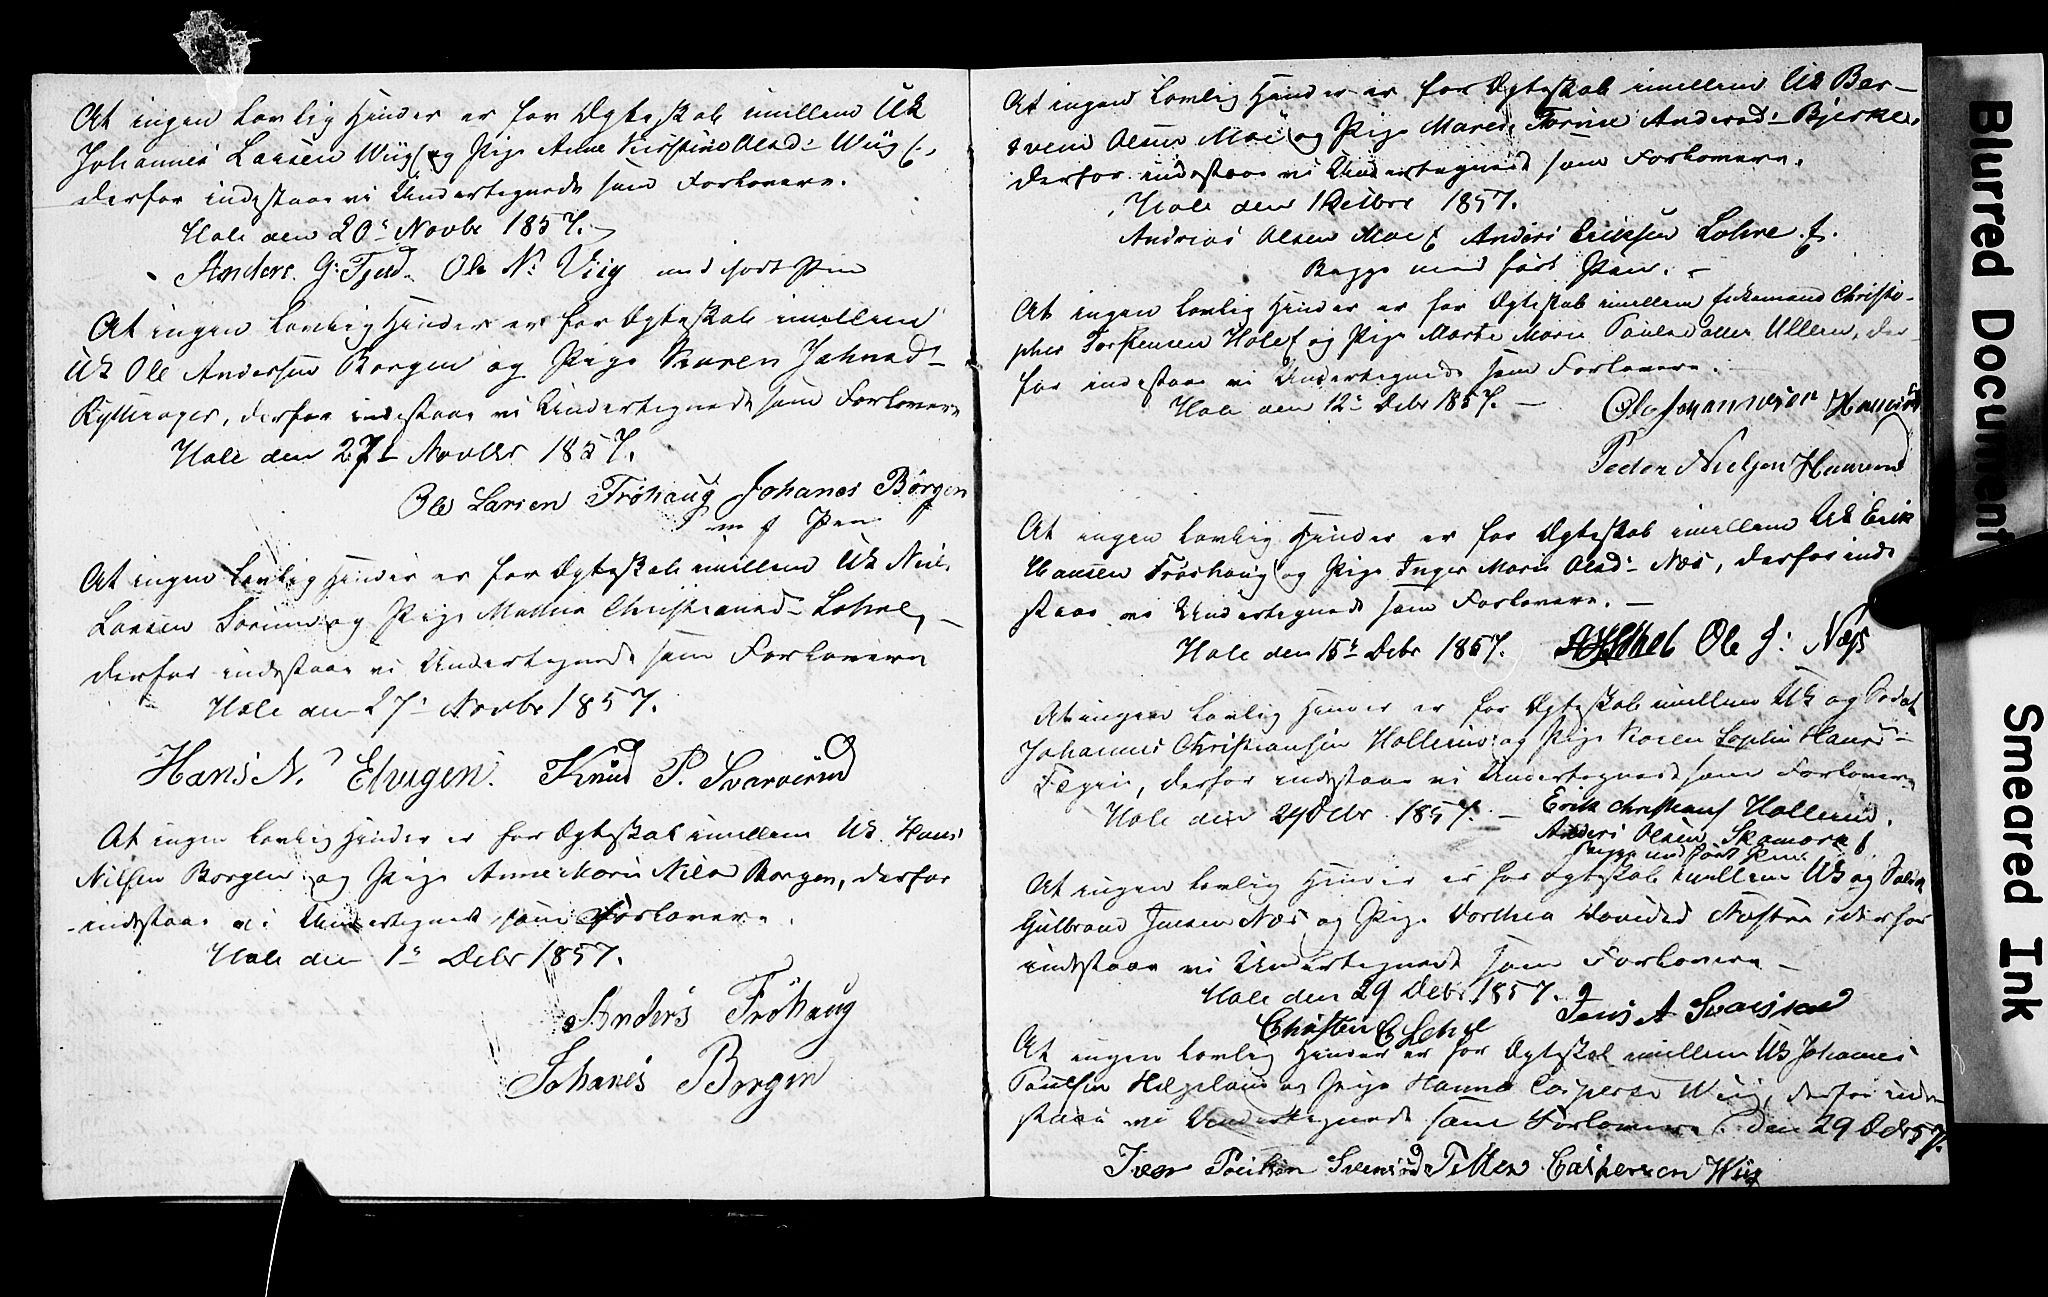 At ingen Lovlig Hinder er for Ægteskab imellem Uk
Johannes Larsen Wiig og Pige Anne Kirstine Olsd: Wiig
derfor indestaae vi Undertegnede som Forlovere.
Hole den 20: Novbr 1857.
Anders G: Tjerd. Ole N: Viig med ført Pen
At ingen Lovlig Hinder er for Ægteskab imellem
Uk Ole Andersen Borgen og Pige Karen Johnsd:
Rytterager, derfor indestaae vi Undertegnede som Forlovere
Hole den 27: Novbr 1857.
Ole Larsen Frøhaug Johanes Børgen
m f Pen
At ingen Lovlig Hinder er for Ægteskab imellem Uk Niels
Larsen Sørum og Pige Mathea Christiansd: Lohre,
derfor indestaae vi Undertegnede som Forlovere
Hole den 27: Novbr 1857.
Hans N. Elvigen. Knud P. Svarverud
At ingen Lovlig Hinder er for Ægteskab imellem Uk. Hans
Nilsen Borgen og Pige Anne Marie Nilsd Borgen, derfor
indestaae vi Undertegnede som Forlovere.
Hole den 1: Debr 1857.
Anders Frøhaug
Johanes Borgen
At ingen Lovlig Hinder er for Ægteskab imellem Uk Ber-
Olsen Moe og Pige Maren Torine Andersd: Bjerke,
derfor indestaae vi Undertegnede som Forlovere.
Hole den 1 Debr 1857.
Andreas Olsen Moe Anders Eriksen Lohre
Begge med ført Pen.
At ingen Lovlig Hinder er for Ægteskab imellem Enkemand Christo-
pher Torstensen Hole og Pige Marte Marie Paulsdatter Ullern, der-
for indestaae vi Undertegnede som Forlovere.
Hole den 12: Debr 1857.
Ole Johannesen
Peder Nielsen
At ingen Lovlig Hinder er for Ægteskab imellem Uk Erik
Hansen Frøshaug og Pige Inger Marie Olsd: Næs, derfor inde
staae vi Undertegnede som Forlovere.
Hole den 15: Debr 1857. Ole J: Næss
At ingen Lovlig Hinder er for Ægteskab imellem Uk og Soldat
Johannes Christiansen Hollerud og Pige Karen Sophie Hansd:
Fægri, derfor indestaae vi Undertegnede som Forlovere
Hole den 24 Debr 1857. Erik Christians Hollerud.
Anders Olsen
Begge med ført Pen
At ingen Lovlig Hinder er for Ægteskab imellem Uk og Soldat
Gulbrand Jensen Næs og Pige Dorthea Davidsd Næsteie, derfor
indestaae vi Undertegnede som Forlovere
Hole den 29 Debr 1857.
Jens A
Christen E
At ingen Lovlig Hinder er for Ægteskab imellem Uk Johannes
Paulsen Helgeland og Pige Hanna Caspersd Wiig, derfor inde
staae vi Undertegnede som Forlovere. den 29 Debr 57.
Iver Poulsen Svensrud Casperson Wiig
Blurred Document
Smeared Ink